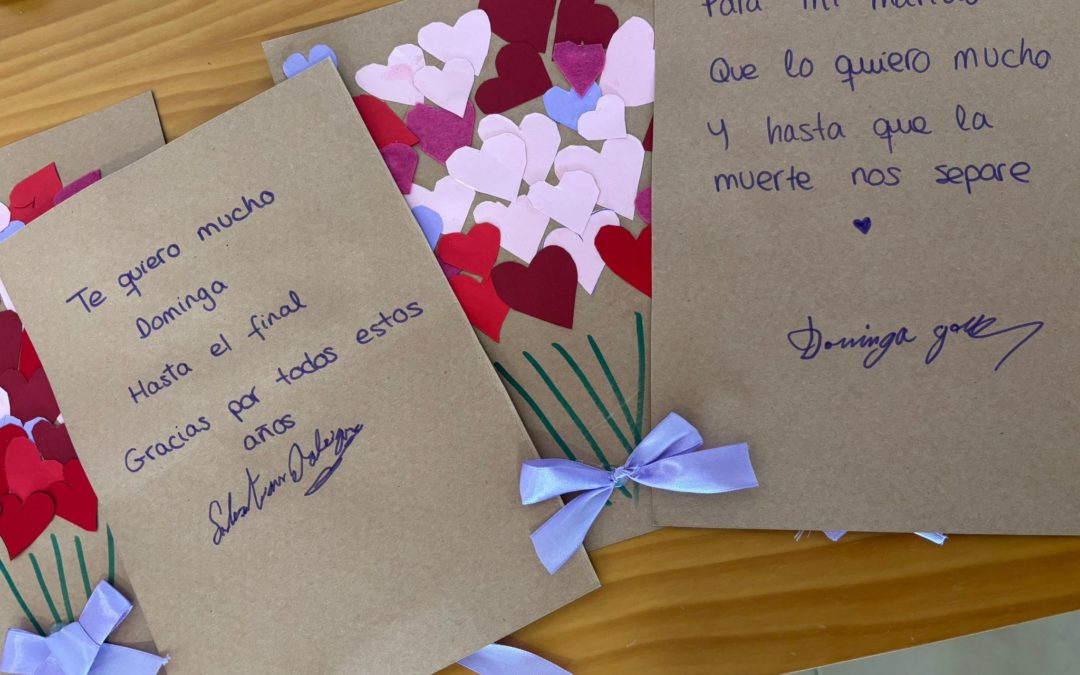 Te quiero mucho
Dominga
Hasta el final
Gracias por todos estos
años
Para mi marido
Que lo quiero mucho
y hasta que la
muerte nos separe
Dominga